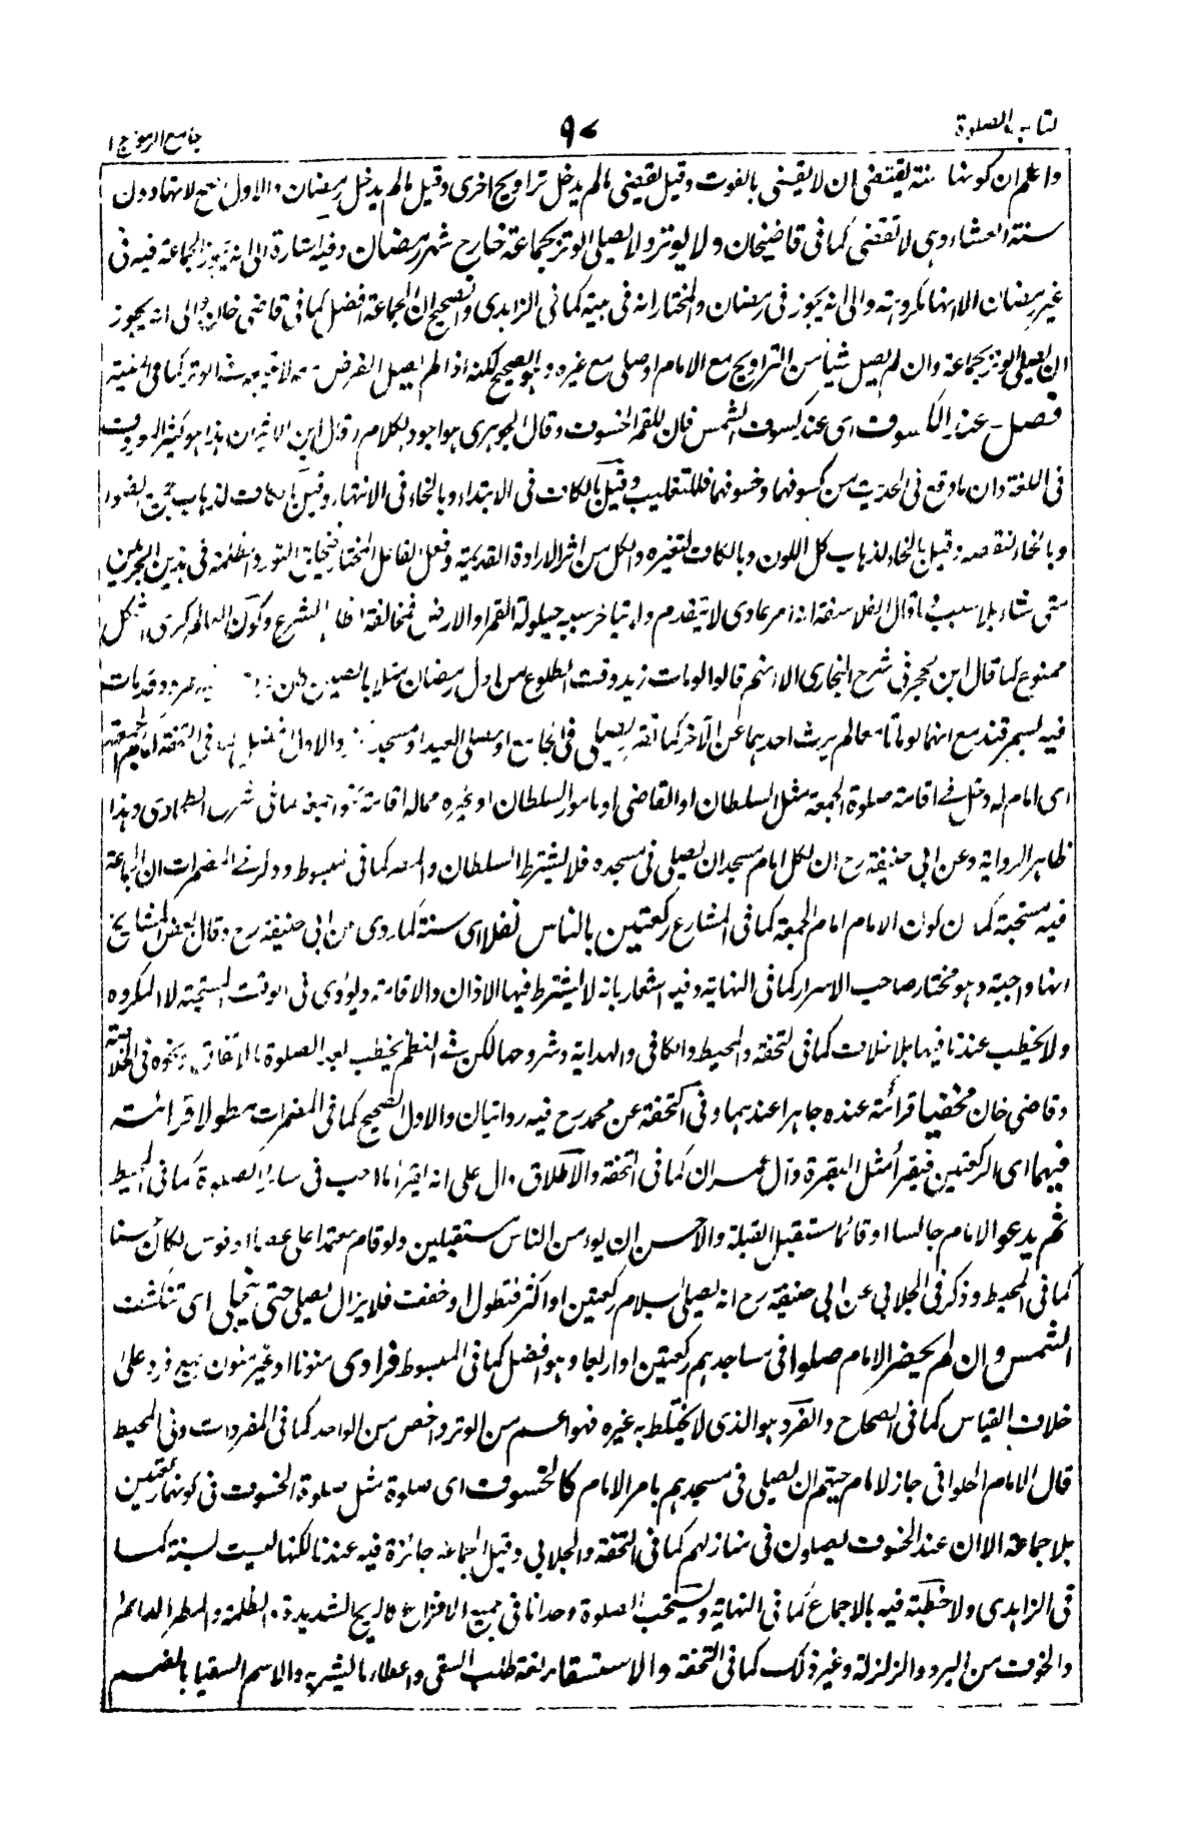 كتاب الصلوة
٩٧
جامع الرموز ج ١
واعلم ان كونها سنة يقتضى ان لا يقضى بالفوت وقيل يقضى مالم يدخل تراويح اخرى وقيل مالم يدخل رمضان والاول اصح لانها دون
سنة العشاء وهى لا تقضى كما فى قاضيخان ولا يوتر ولا يصلى الوتر بجماعة خارج شهر رمضان وفيه اشارة الى انه يجوز الجماعة فيه فى
غير رمضان الا انها مكروهة والى انه يجوز فى رمضان والمختار انه فى بيته كما فى الزاهدى والصحيح ان الجماعة افضل كما فى قاضى خان والى انه يجوز
ان يصلى الوتر بجماعة وان لم يصل شيأ من التراويح مع الامام او صلى مع غيره وهو الصحيح لكنه اذا لم يصل الفرض معه لا يتبعه فى الوتر كما فى المنية
فصل عند الكسوف اى عند كسوف الشمس فان للقمر الخسوف وقال الجوهرى هو اجود الكلام وقال ابن الاثير ان هذا هو كثير المعروف
فى اللغة وان ما وقع فى الحديث من كسوفهما وخسوفهما فللتغليب وقيل بالكاف فى الابتداء وبالخاء فى الانتهاء وقيل بالكاف لذهاب جميع الضوء
وبالخاء لنقصه وقيل بالخاء لذهاب كل اللون وبالكاف لتغيره والكل من اثر الارادة القديمة وفعل الفاعل المختار فيخلق النور والظلمة فى هذين الجرمين
متى شاء بلا سبب وما قال الفلاسفة انه امر عادى لا يتقدم ولا يتأخر سببه حيلولة القمر او الارض فمخالفة لظاهر الشرع وكون العالم كرى الشكل
ممنوع كما قال ابن حجر فى شرح البخارى الا انهم قالوا لو مات زيد وقت الطلوع من اول رمضان مثلا بالصين كان وقد مات
فيه بسمرقند مع انهما لو ماتا معا لم يرث احدهما عن الآخر كما تقرر يصلى فى الجامع او مصلى العيد او مسجد والاول افضل كما فى التحفة امام الجمعة
اى امام له دخل فى اقامة صلوة الجمعة مثل السلطان او القاضى او مأمور السلطان او غيره مما له اقامة نحو الجمعة كما فى شرح الطحاوى وهذا
ظاهر الرواية وعن ابى حنيفة رح ان لكل امام مسجد ان يصلى فى مسجده فلا يشترط السلطان والمصر كما فى المبسوط وذكر فى المضمرات ان الجماعة
فيه مستحبة كما ان كون الامام امام الجمعة كما فى المشارع ركعتين بالناس نفلا اى سنة كما روى عن ابى حنيفة رح وقال بعض المشايخ
انها واجبة وهو مختار صاحب الاسرار كما فى النهاية وفيه اشعار بانه لا يشترط فيها الاذان والاقامة ويؤدى فى الوقت المستحبة لا المكروه
ولا يخطب عندنا فيها بلا خلاف كما فى التحفة والمحيط والكافى والهداية وشروحها لكن فى النظم يخطب بعد الصلوة بالاتفاق ونحوه فى الخلاصة
وقاضى خان مخفيا قرائته عنده جاهرا عندهما وفى التحفة عن محمد رح فيه روايتان والاول الصحيح كما فى المضمرات مطولا قرائته
فيهما اى الركعتين فيقرأ مثل البقرة وآل عمران كما فى التحفة والاطلاق دال على انه يقرأ ما احب فى سائر الصلوة كما فى المحيط
ثم يدعو الامام جالسا او قائما مستقبل القبلة والاحسن ان يؤمن الناس مستقبلين ولو قام معتمدا على عصا او قوس لكان حسنا
كما فى المحيط وذكر فى الجلابى عن ابى حنيفة رح انه يصلى بسلام ركعتين او اكثر فتطول او خففت فلا يزال يصلى حتى تنجلى اى تنكشف
الشمس وان لم يحضر الامام صلوا فى مساجدهم ركعتين او اربعا وهو افضل كما فى المبسوط فرادى منونا او غير منون جمع فرد على
خلاف القياس كما فى الصحاح والفرد هو الذى لا يختلط به غيره فهو اعم من الوتر واخص من الواحد كما فى المفردات وفى المحيط
قال الامام الحلوانى جاز لامام حيهم ان يصلى فى مسجدهم بامر الامام كالخسوف اى صلوة مثل صلوة الخسوف فى كونها ركعتين
بلا جماعة الا ان عند الخسوف يصلون فى منازلهم كما فى التحفة والجلابى وقيل الجماعة جائزة فيه عندنا لكنها ليست بسنة كما
فى الزاهدى ولا خطبة فيه بالاجماع كما فى النهاية ويستحب الصلوة وحدانا فى جميع الافزاع كالريح الشديدة والظلمة والمطر الدائم
والخوف من البرد والزلزلة وغير ذلك كما فى التحفة والاستسقاء لغة طلب السقى واعطاء ما يشربه والاسم السقيا بالضم